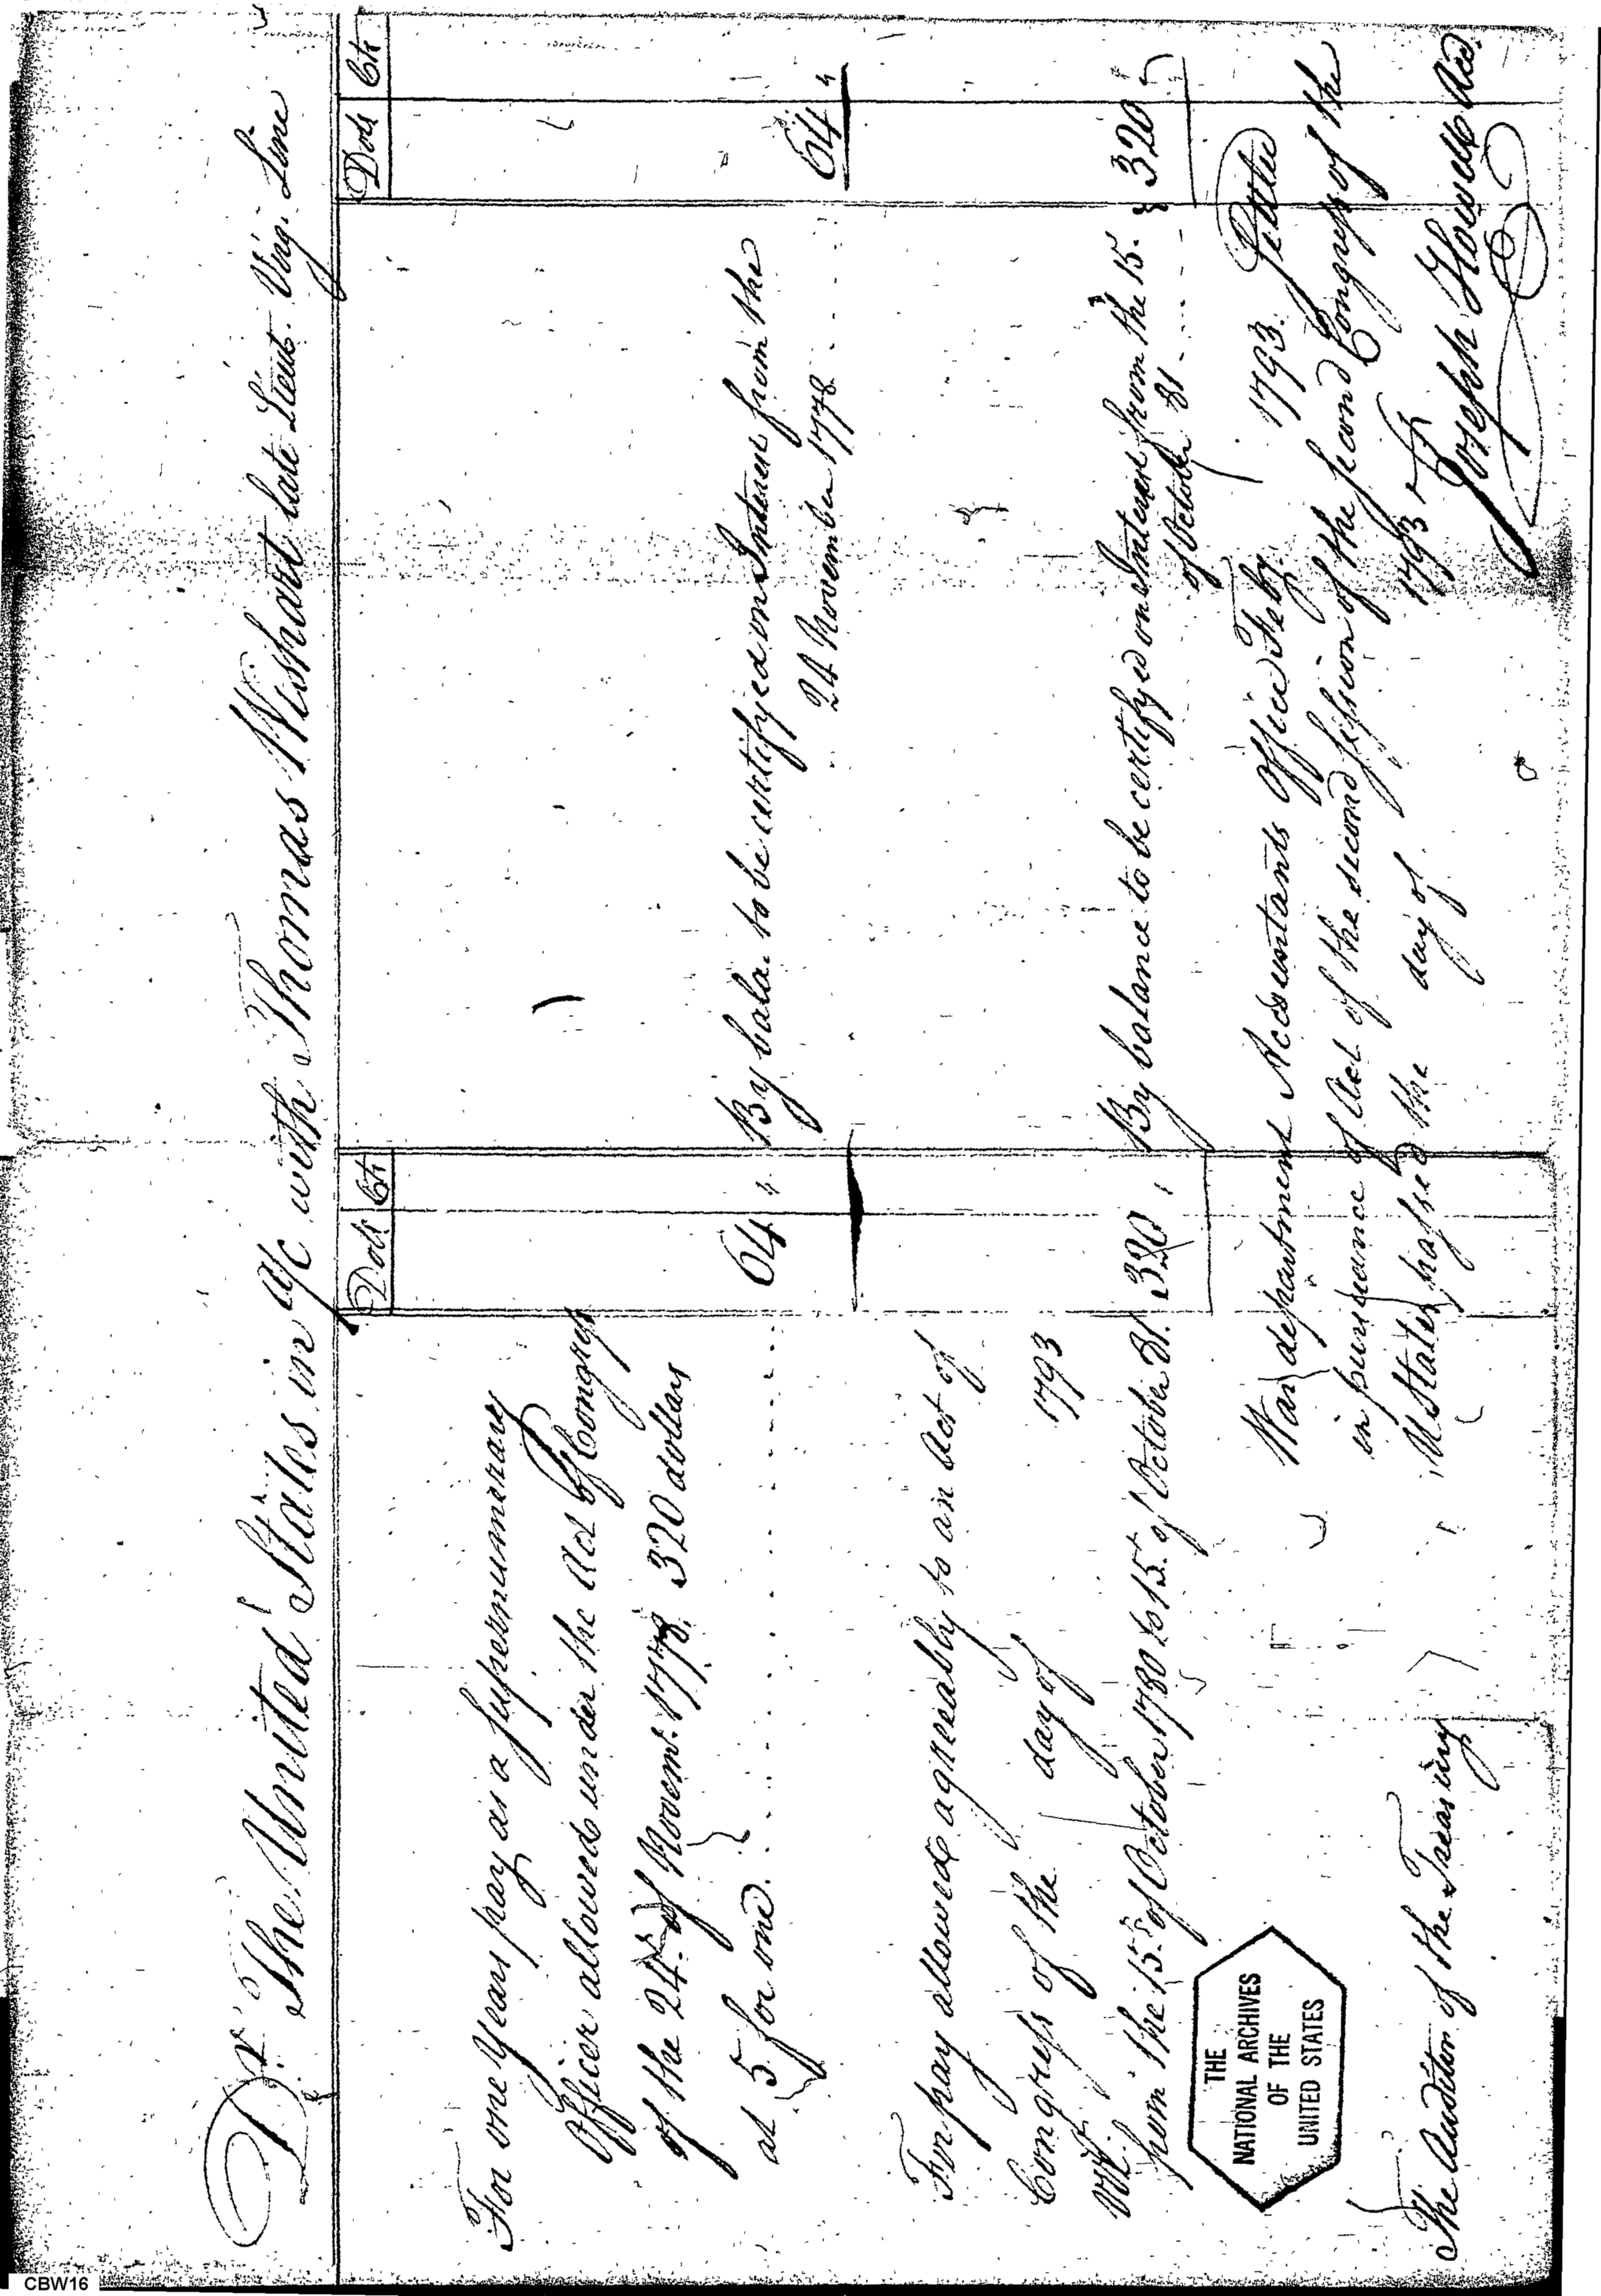 Dr. The United States in a/c with Thomas Wishart late Lieut. Virg. Line
Dols Cts
Dols Cts
For one Years pay as a Supernumerary
Officer allowed under the Act of Congress
of the 24th of Novemr. 1778. 320 dollars
at 5 for one
64 "
By bala. to be certifyed on Interest from the
24 November 1778
64 "
For pay allowed agreeably to an Act of
Congress of the day of 1793
Viz.
from the 15th of October 1780 to 15th of October 81.
320
By balance to be certifyed on Interest from the 15th
of October 81
320
War department Accountants Office Feby. 1793. Settled
in pursuance of Act of the second Session of the second Congress of the
U States passed the day of 1793
The Auditor of the Treasury
Joseph Howell Acct.
THE
NATIONAL ARCHIVES
OF THE
UNITED STATES
CBW16